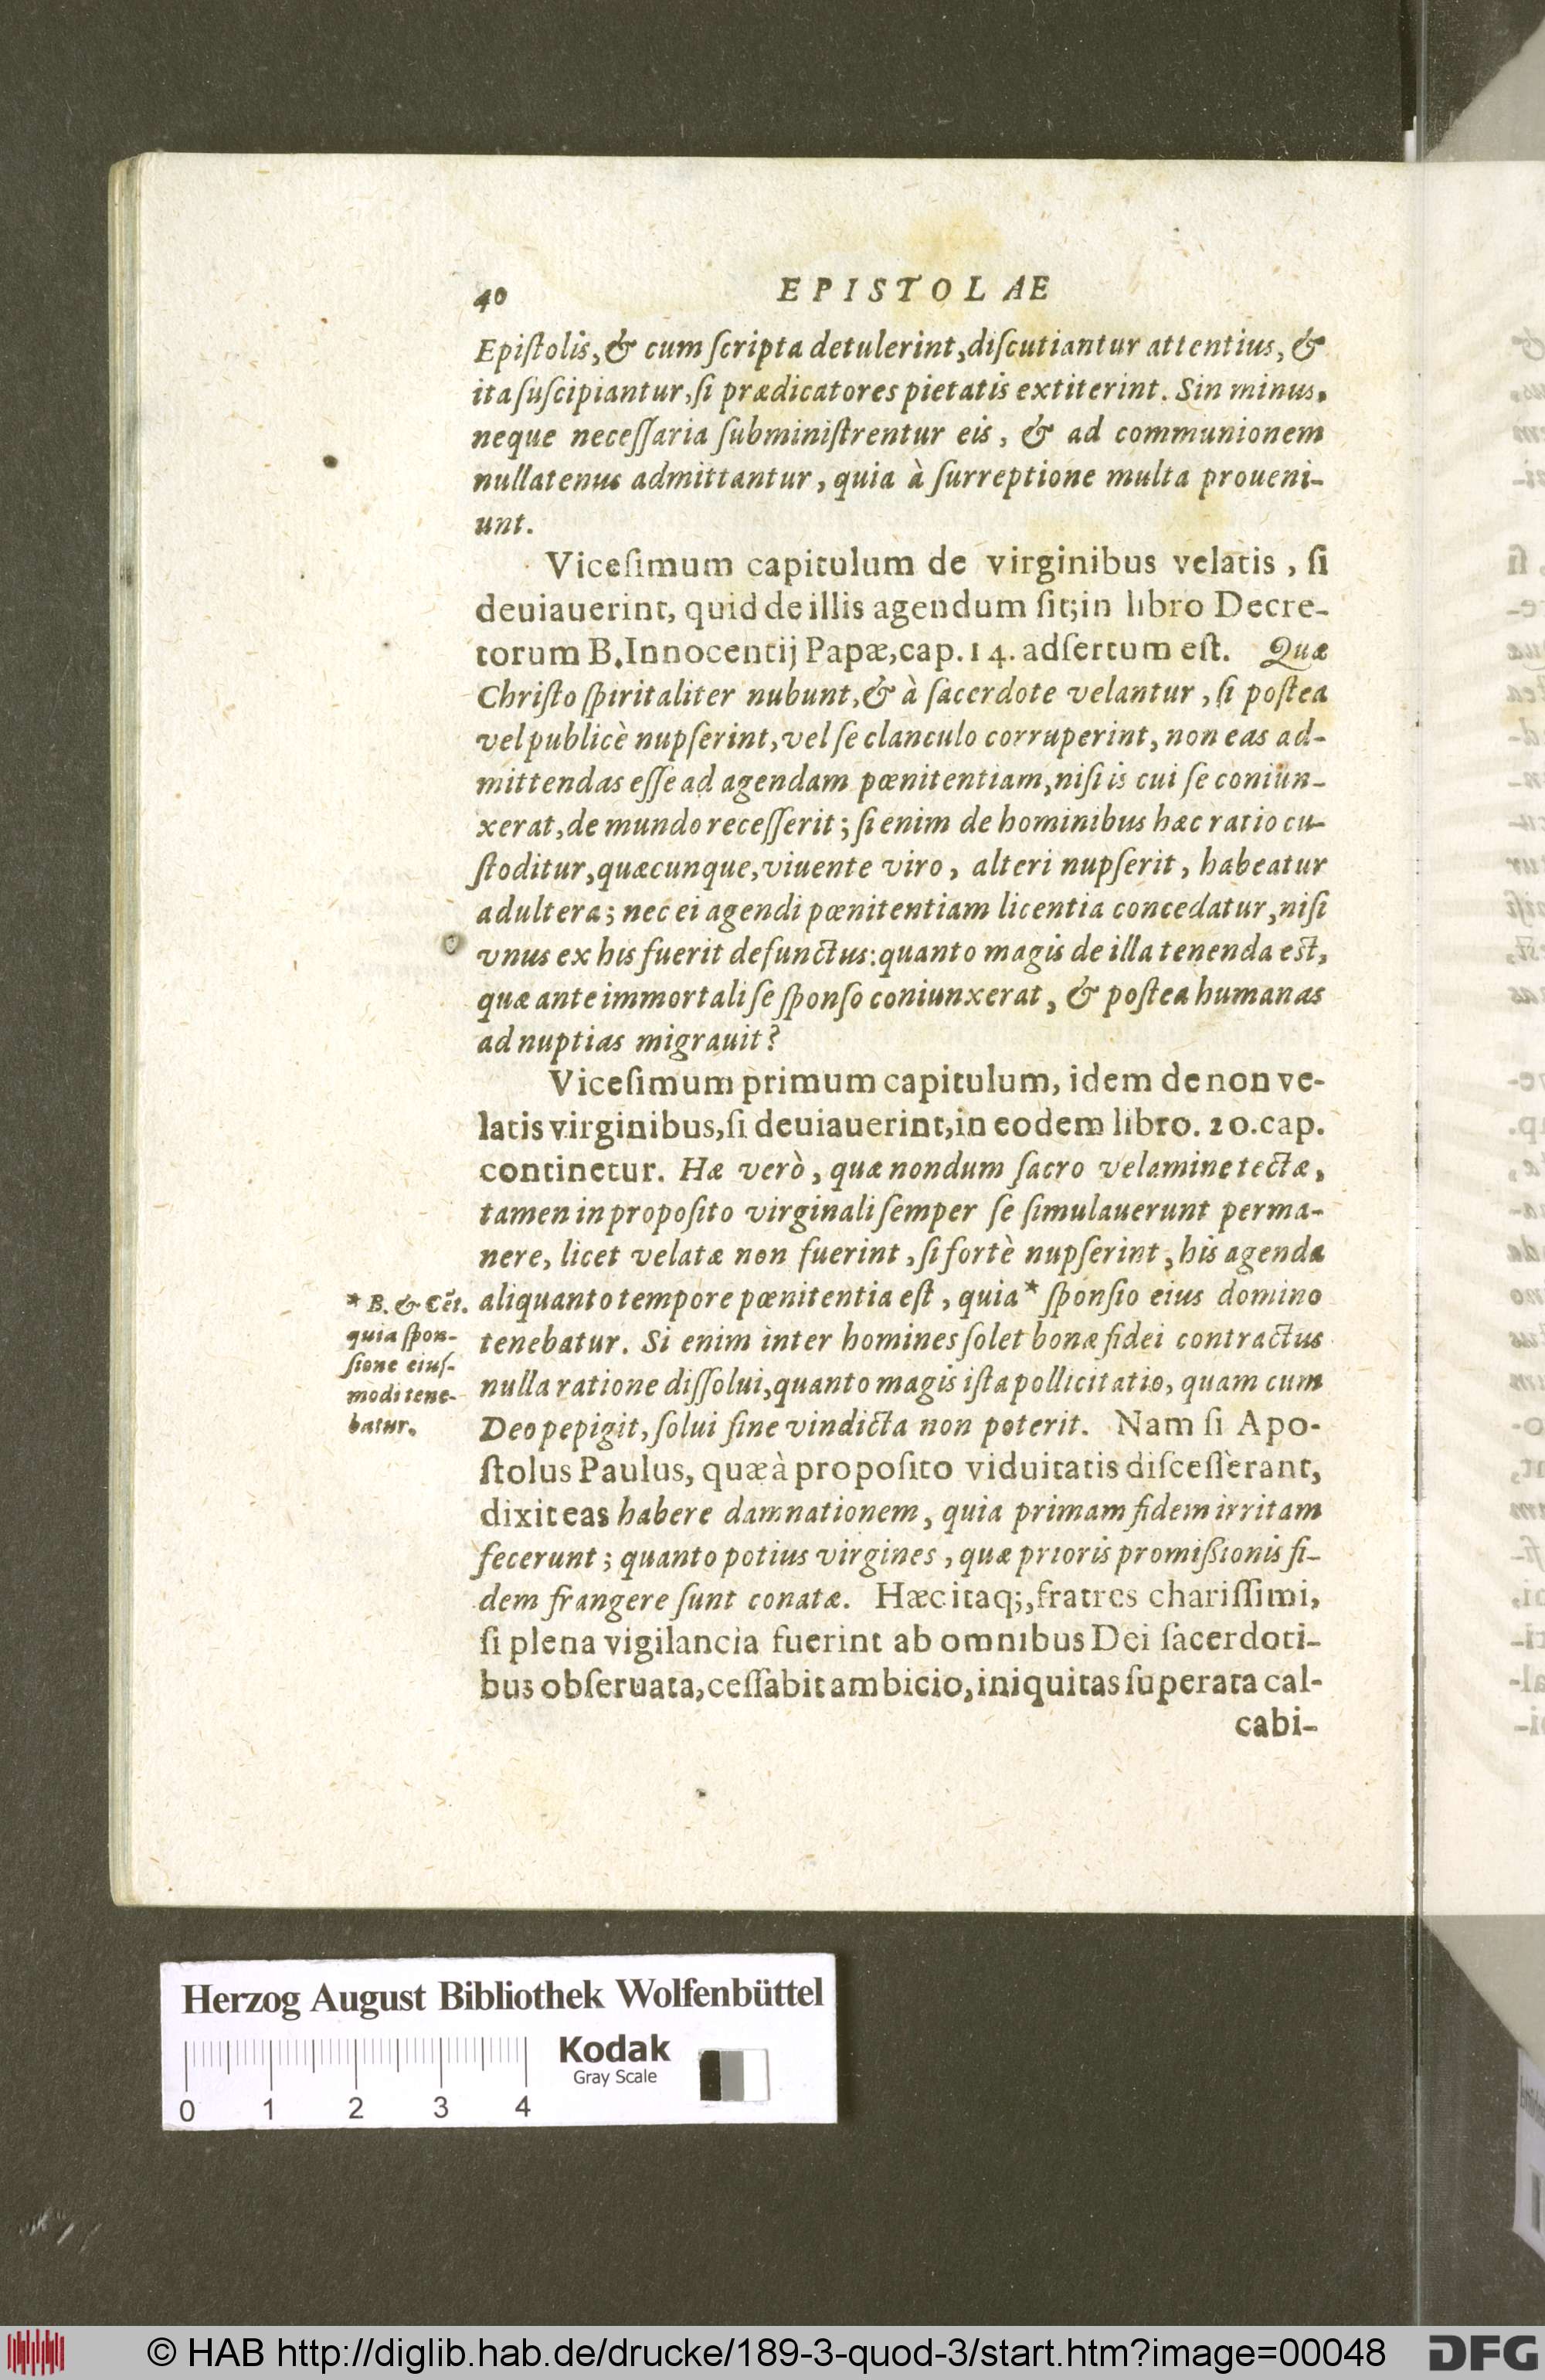 40 EPISTOLAE
Epiſtolis, & cum ſcripta detulerint, diſcutiantur attentius, &
ita ſuſcipiantur, ſi prædicatores pietatis extiterint. Sin minus,
neque neceſſaria ſubminiſtrentur eis, & ad communionem
nullatenus admittantur, quia à ſurreptione multa proueni-
unt.
Viceſimum capitulum de virginibus velatis, ſi
deuiauerint, quid de illis agendum ſit; in libro Decre-
torum B. Innocentij Papæ, cap. 14. adſertum eſt. Quæ
Chriſto ſpiritaliter nubunt, & à ſacerdote velantur, ſi poſtea
vel publicè nupſerint, vel ſe clanculo corruperint, non eas ad-
mittendas eſſe ad agendam pœnitentiam, niſi is cui ſe coniun-
xerat, de mundo receſſerit; ſi enim de hominibus hæc ratio cu-
ſtoditur, quæcunque, viuente viro, alteri nupſerit, habeatur
adultera; nec ei agendi pœnitentiam licentia concedatur, niſi
vnus ex his fuerit defunctus: quanto magis de illa tenenda eſt,
quæ ante immortali ſe ſponſo coniunxerat, & poſtea humanas
ad nuptias migrauit?
Viceſimum primum capitulum, idem de non ve-
latis virginibus, ſi deuiauerint, in eodem libro. 20. cap.
continetur. Hæ verò, quæ nondum ſacro velamine tectæ,
tamen in propoſito virginali ſemper ſe ſimulauerunt perma-
nere, licet velatæ non fuerint, ſi fortè nupſerint, his agenda
aliquanto tempore pœnitentia eſt, quia * ſponſio eius domino
tenebatur. Si enim inter homines ſolet bonæ fidei contractus
nulla ratione diſſolui, quanto magis iſta pollicitatio, quam cum
Deo pepigit, ſolui ſine vindicta non poterit. Nam ſi Apo-
ſtolus Paulus, quæ à propoſito viduitatis diſceſſèrant,
dixit eas habere damnationem, quia primam fidem irritam
fecerunt; quanto potius virgines, quæ prioris promißionis fi-
dem frangere ſunt conatæ. Hæc itaq;, fratres chariſſimi,
ſi plena vigilancia fuerint ab omnibus Dei ſacerdoti-
bus obſeruata, ceſſabit ambicio, iniquitas ſuperata cal-
cabi-
* B. & Cēt.
quia ſpon-
ſione eiuſ-
modi tene-
batur.
Herzog August Bibliothek Wolfenbüttel
Kodak
Gray Scale
0 1 2 3 4
© HAB http://diglib.hab.de/drucke/189-3-quod-3/start.htm?image=00048
DFG